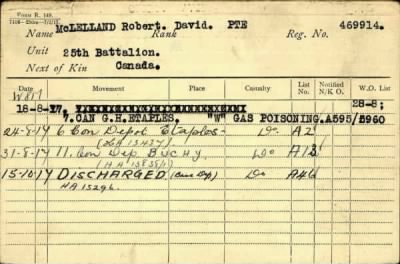 FORM R. 149.
Name McLELLAND Robert. David. Rank PTE Reg. No. 469914.
Unit 25th Battalion.
Next of Kin Canada.
Date Movement Place Casualty List No. Notified N/K O. W.O. List
W 3111
18-8-17. 28-8;
7. CAN G.H. ETAPLES. "W" GAS POISONING. A595/5960
24-8-17 6 Con Depot Etaples- Do. A2
31-8-17 11. Con Dep. BUCHY. Do A13
15-10-17 DISCHARGED (Base Dep) Do A46
HA 15296.